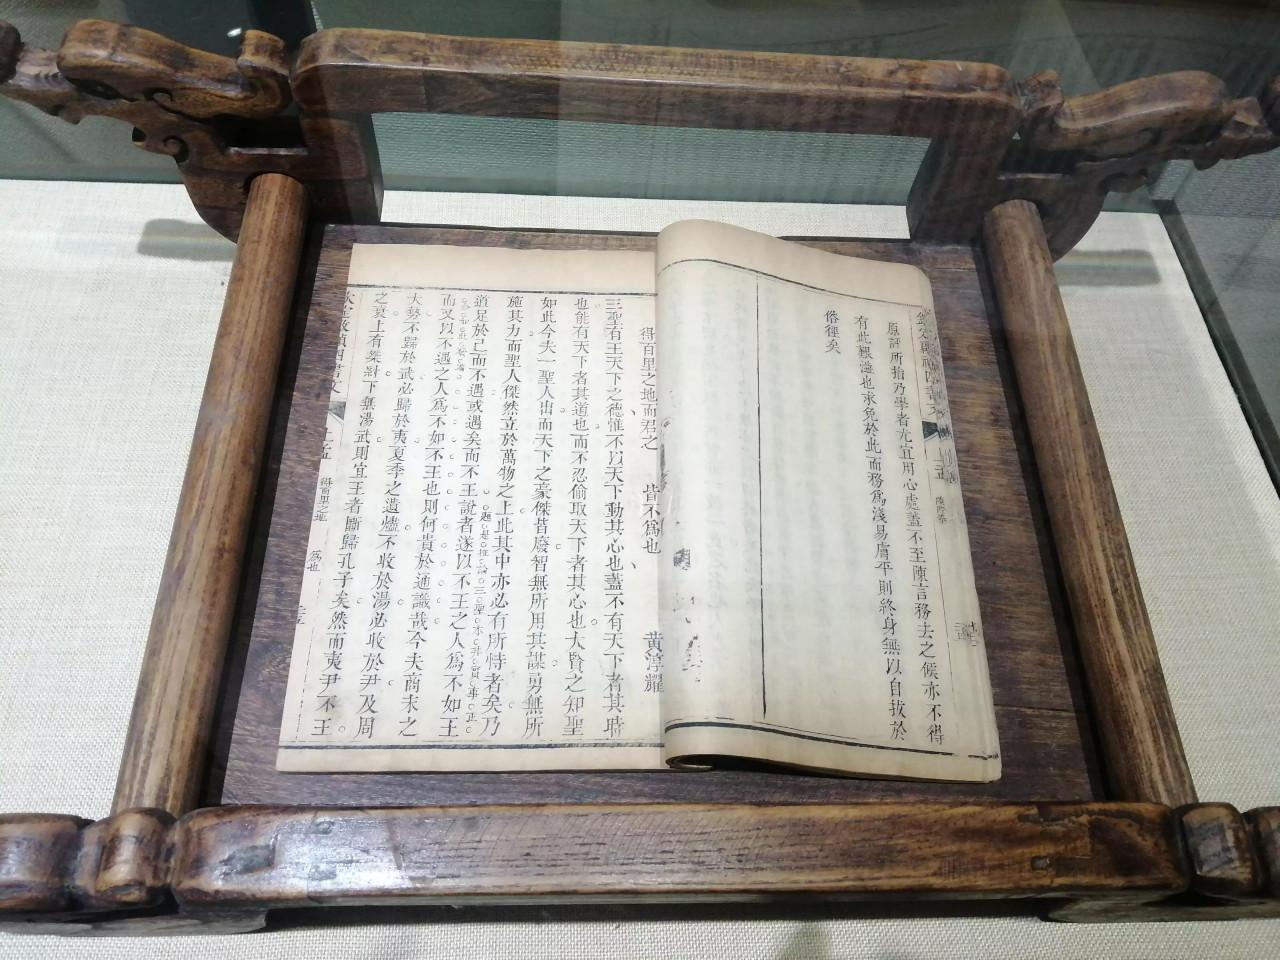 原評所指乃學者尤宜用心處蓋不至陳言務去之候亦不得
有此艱澁也求免於此而務為淺易膚平則終身無以自拔於
俗徑矣
得百里之地而君之 皆不為也 黄淳耀
三聖有王天下之德惟不以天下動其心也蓋不有天下者其時
也能有天下者其道也而不忍偷取天下者其心也大賢之知聖
如此今夫一聖人出而天下之豪傑昔廢智無所用其謀勇無所
施其力而聖人傑然立於萬物之上此其中亦必有所恃者矣乃
道足於己而不遇或遇矣而不王說者遂以不王之人為不如王
題是推論三聖本非實事正
而又以不遇之人為不如不王也則何貴於通識哉今夫商末之
大勢不歸於武必歸於夷夏季之遺燼不收於湯必收於尹及周
之衰上有桀紂下無湯武則宜王者斷歸孔子矣然而夷尹不王
四書文
得百里之地
為也